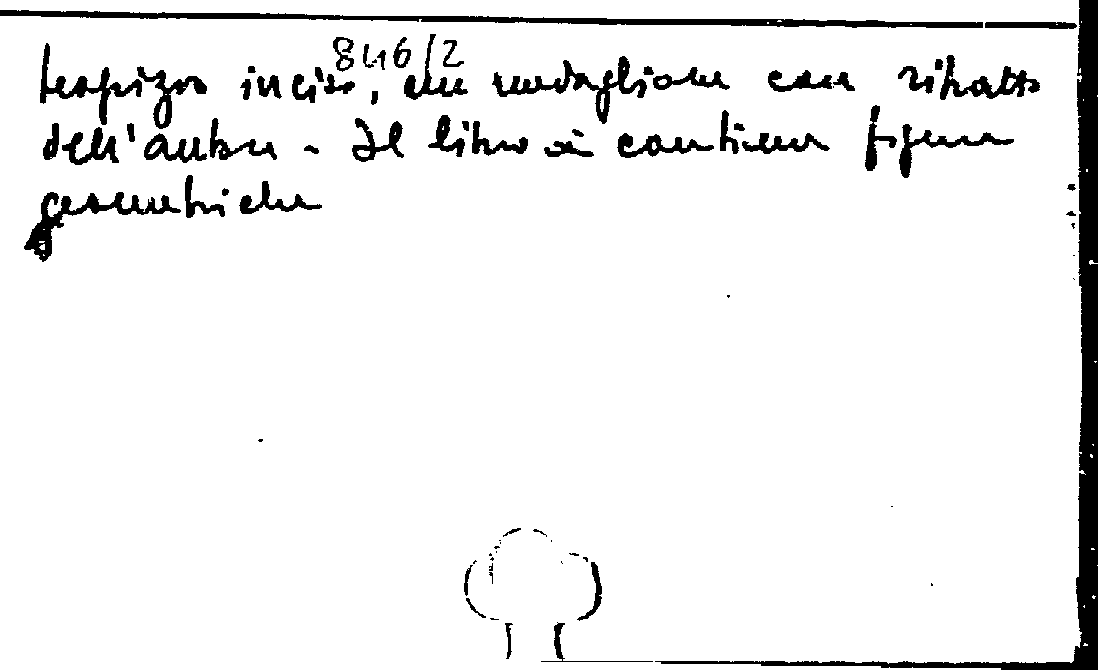 846/2
tespizio inciso, un medaglione con ritratto
dell'autore - Il libro contiene figure
geometriche